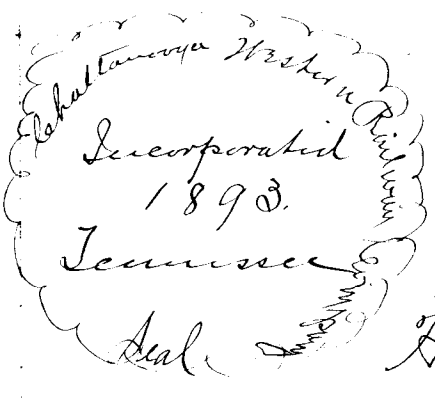 Chattanooga Western Railway Company
Incorporated
1893.
Tennessee
Seal.